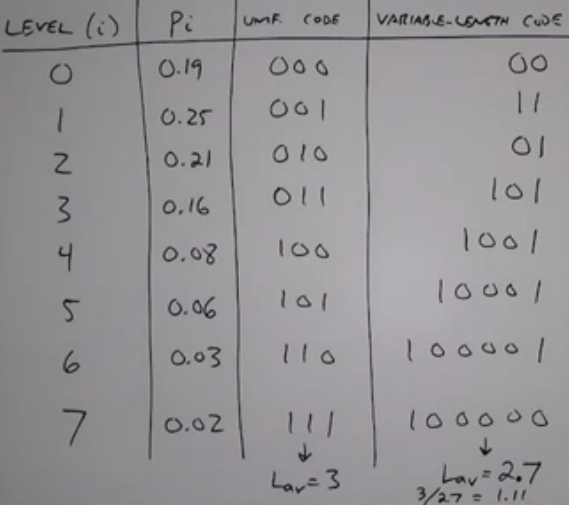 LEVEL (i) Pi UNIF. CODE VARIABLE-LENGTH CODE
0 0.19 000 00
1 0.25 001 11
2 0.21 010 01
3 0.16 011 101
4 0.08 100 1001
5 0.06 101 10001
6 0.03 110 100001
7 0.02 111 100000
↓ ↓
Lav=3 Lav=2.7
3/27 = 1.11